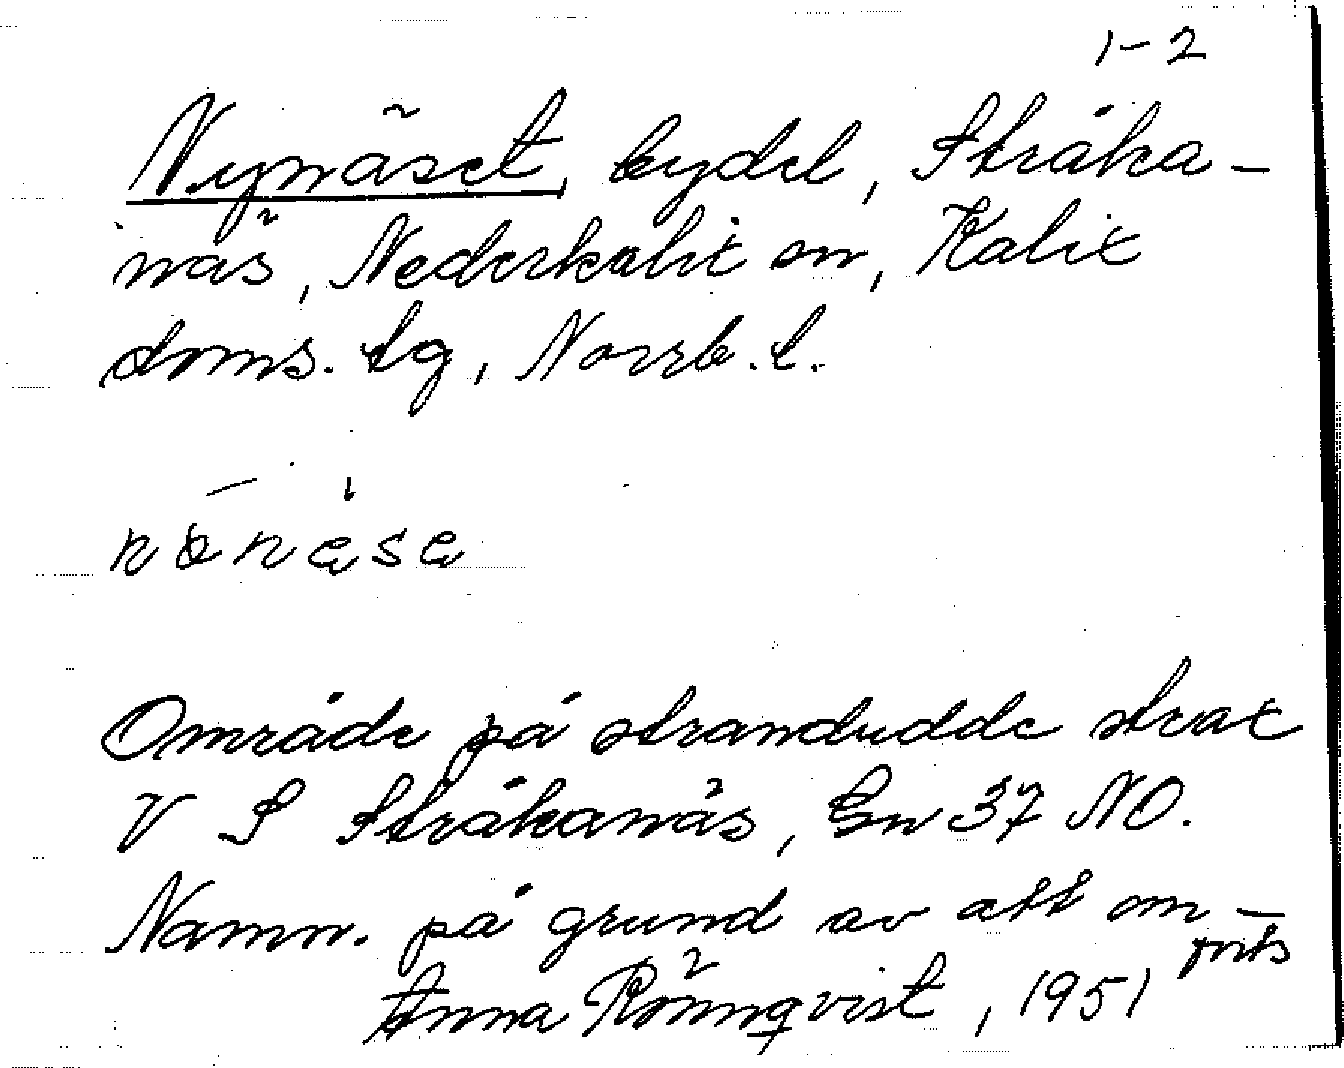 1-2
Nynäset, bydel, Stråka-
näs, Nederkalix sn, Kalix
doms. lg, Norrb. l.
Område på strandudde strax
V S Stråkanäs, Gn 37 NO.
Namn. på grund av att om-
forts
Anna Rönnqvist, 1951